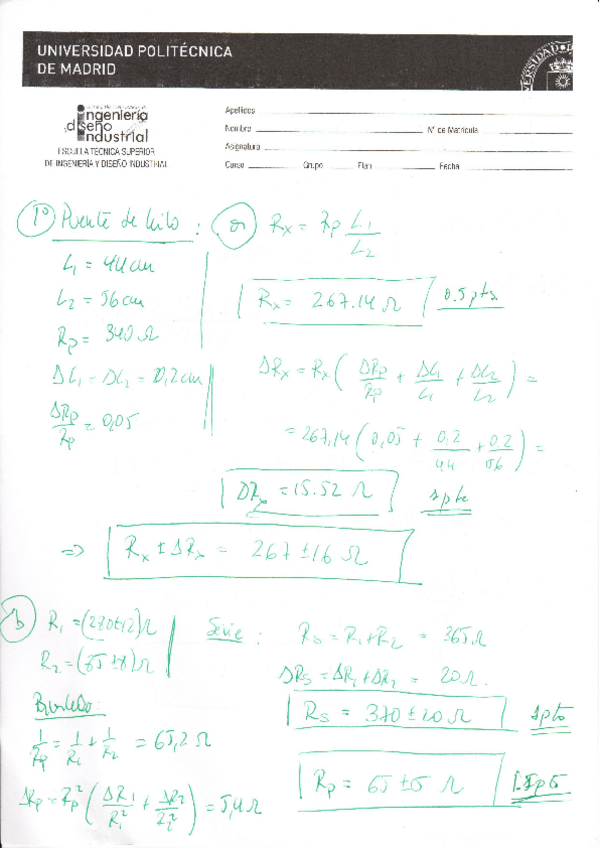 UNIVERSIDAD POLITÉCNICA
DE MADRID
ingeniería
diseño
industrial
ESCUELA TÉCNICA SUPERIOR
DE INGENIERÍA Y DISEÑO INDUSTRIAL
Apellidos
Nombre Nº de Matrícula
Asignatura
Curso Grupo Plan Fecha
1º Puente de hilo :
L₁ = 44 cm
L₂ = 56 cm
Rp = 340 Ω
ΔL₁ = ΔL₂ = 0,2 cm
ΔRp/Rp = 0,05
a) Rx = Rp L₁/L₂
Rx = 267.14 Ω 0.5 pts
ΔRx = Rx ( ΔRp/Rp + ΔL₁/L₁ + ΔL₂/L₂ ) =
= 267,14 ( 0,05 + 0.2/44 + 0.2/56 ) =
ΔRx = 15.52 Ω 1 pto
=> Rx ± ΔRx = 267 ± 16 Ω
b) R₁ = (280 ± 12) Ω
R₂ = (85 ± 8) Ω
Serie : Rs = R₁ + R₂ = 365 Ω
ΔRs = ΔR₁ + ΔR₂ = 20 Ω.
Rs = 370 ± 20 Ω 1 pto
Paralelo:
1/Rp = 1/R₁ + 1/R₂ = 65,2 Ω
ΔRp = Rp² ( ΔR₁/R₁² + ΔR₂/R₂² ) = 5,4 Ω
Rp = 65 ± 5 Ω 1.5 pts